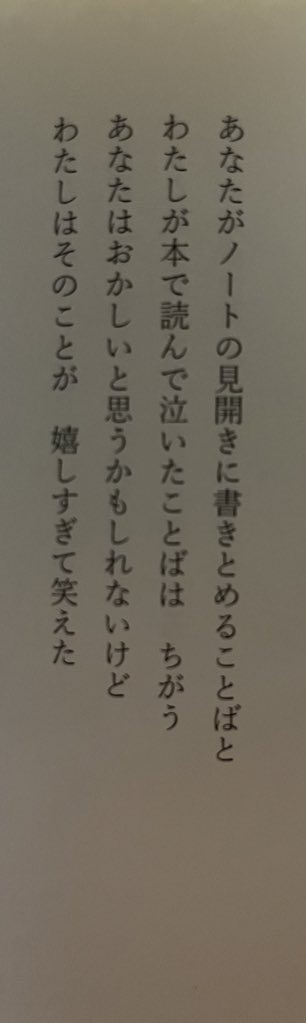 あなたがノートの見開きに書きとめることばと
わたしが本で読んで泣いたことばは　ちがう
あなたはおかしいと思うかもしれないけど
わたしはそのことが　嬉しすぎて笑えた